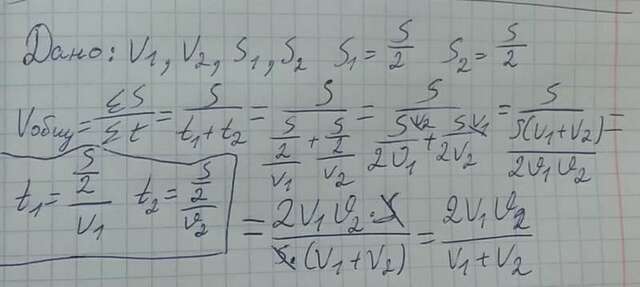 Дано: V1, V2, S1, S2 S1 = S/2 S2 = S/2
Vобщ = ΣS/Σt = S/(t1 + t2) = S/((S/2)/V1 + (S/2)/V2) = S/(SV2/2V1 + SV1/2V2) = S/(S(V1+V2)/2V1V2) =
t1 = (S/2)/V1 t2 = (S/2)/V2
= 2V1V2·S/S·(V1+V2) = 2V1V2/(V1+V2)